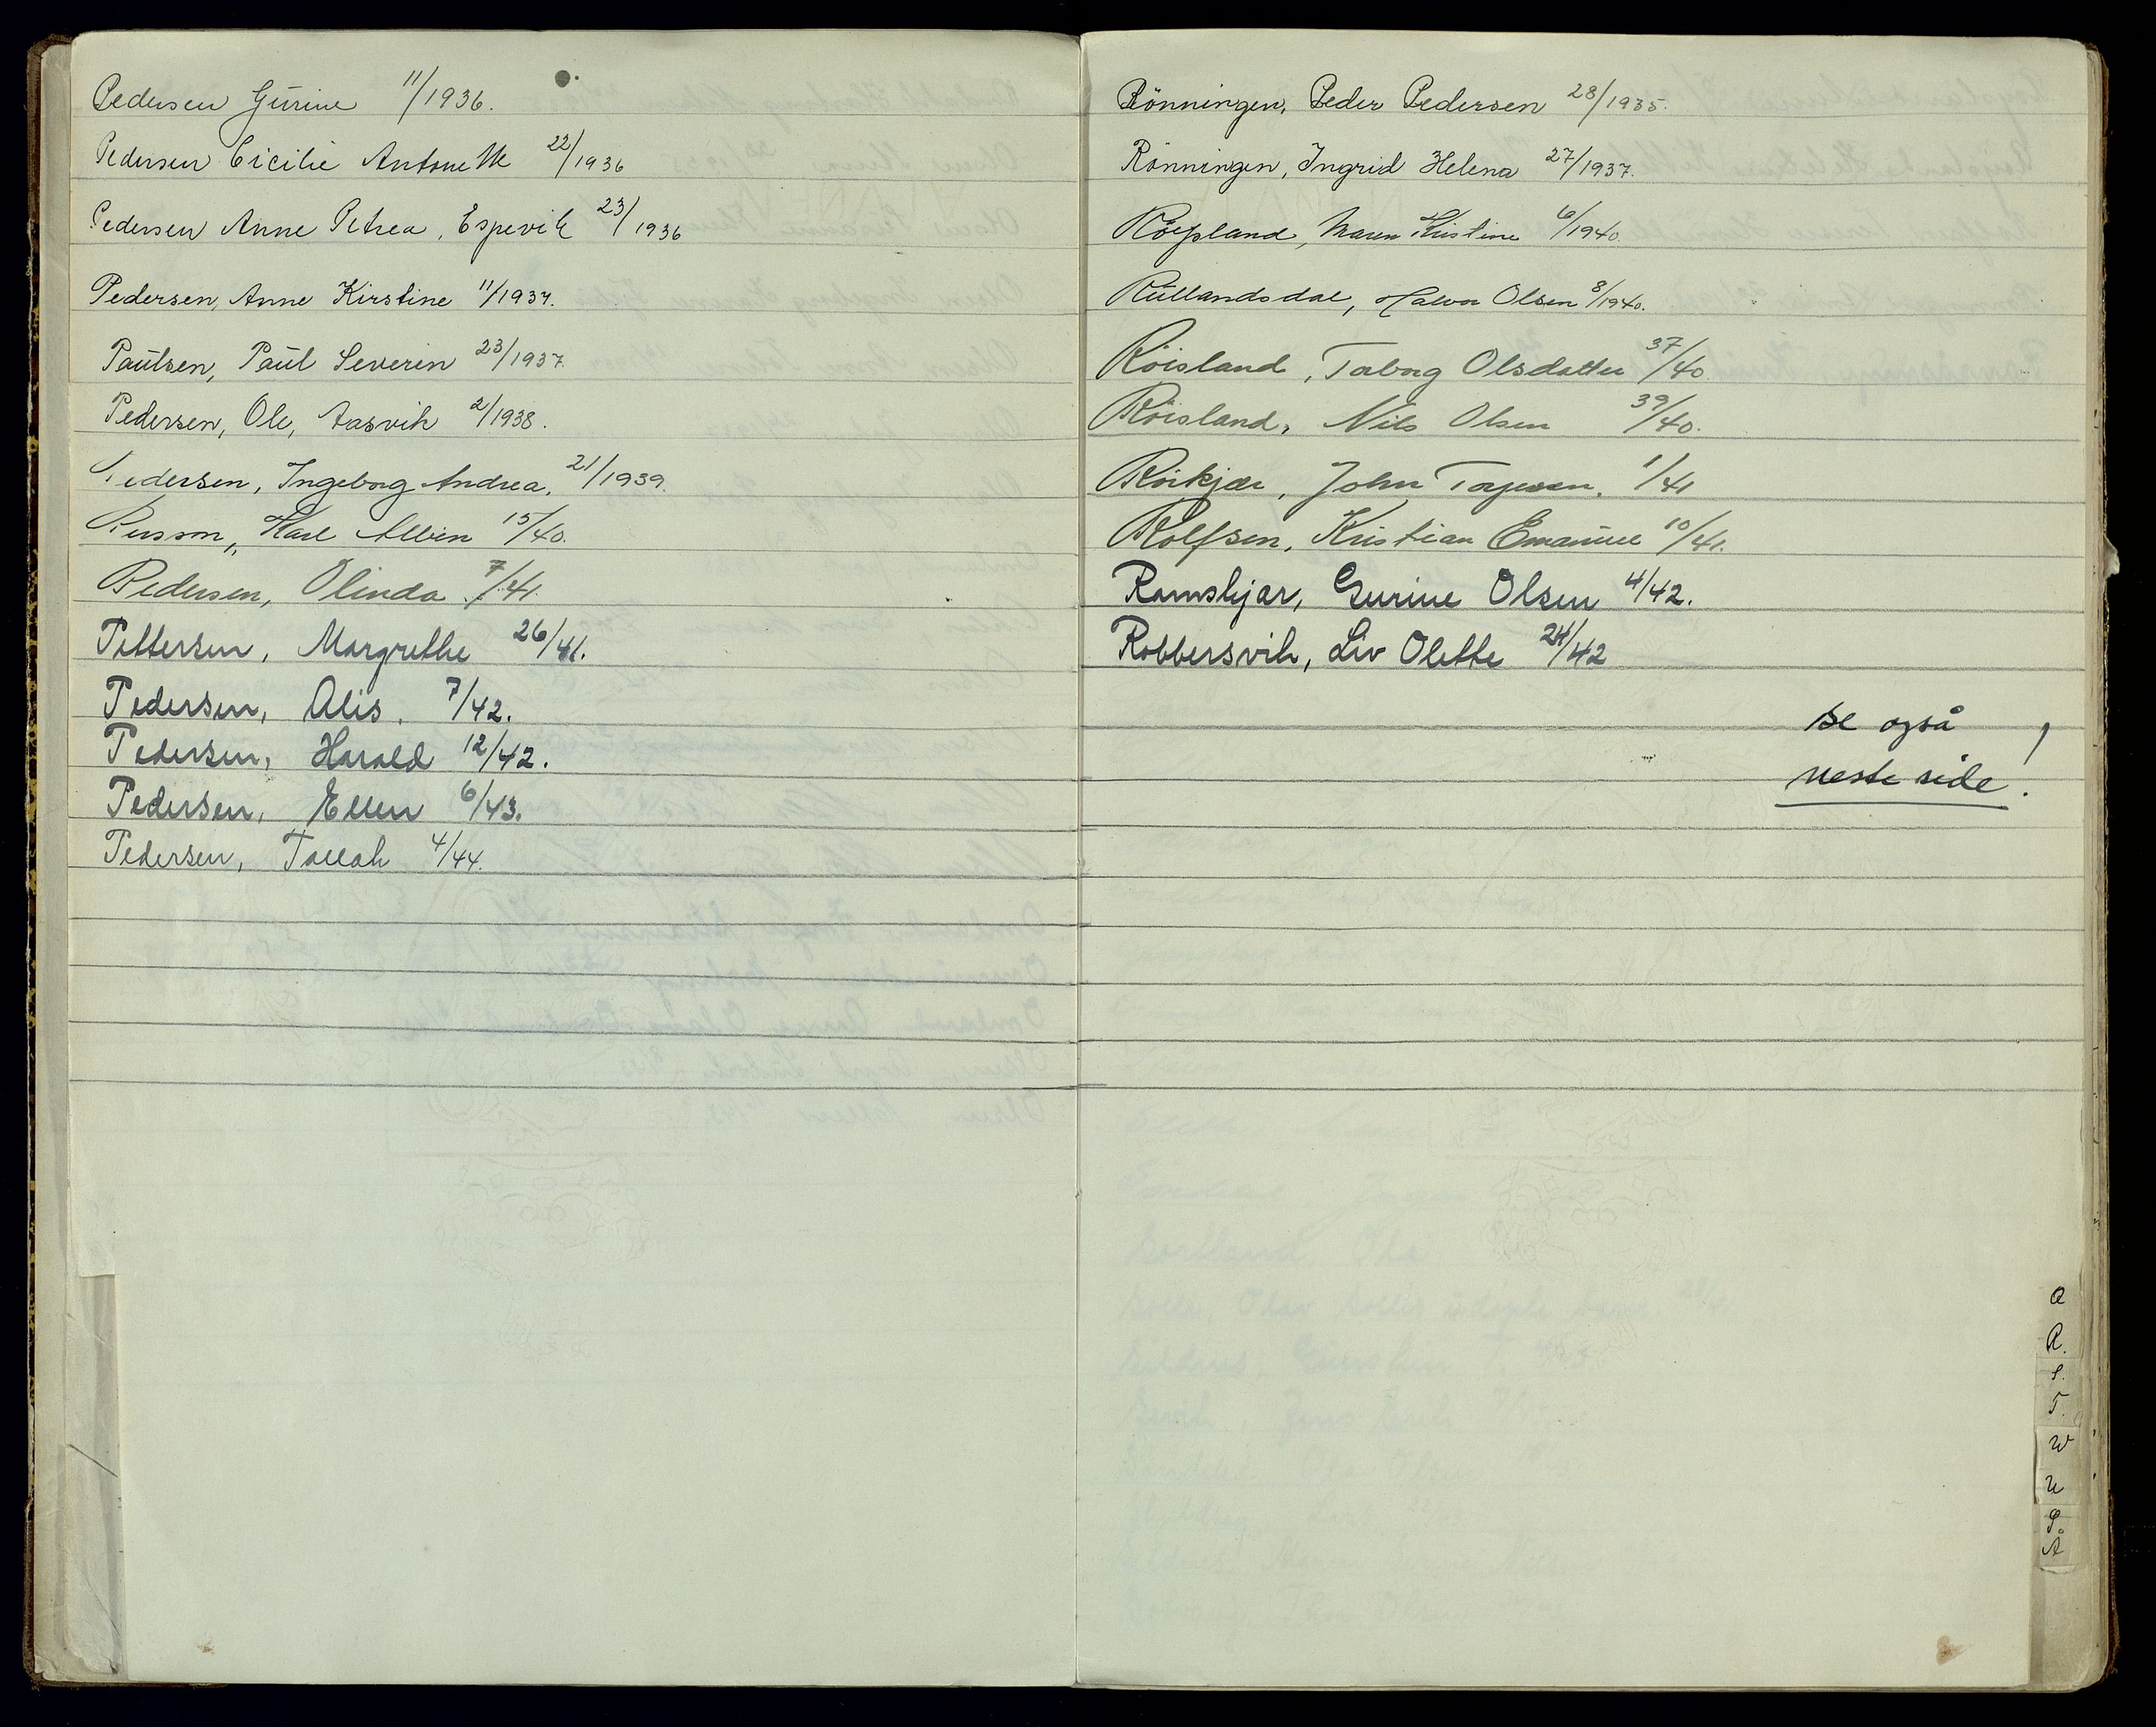 Pedersen Gŭrine 11/1936.
Pedersen Cicilie Antonette 22/1936
Pedersen Anne Petrea, Espevik 23/1936
Pedersen, Anne Kirstine 11/1937.
Paŭlsen, Paŭl Severin 23/1937.
Pedersen, Ole, Aasvik 2/1938.
Pedersen, Ingeborg Andrea. 21/1939.
Persson, Karl Albin 15/40.
Pedersen, Olinda 7/41.
Pettersen, Margrethe 26/41.
Pedersen, Alis. 7/42.
Pedersen, Harald 12/42.
Pedersen, Ellen 6/43.
Pedersen, Tallak 4/44.
Rönningen, Peder Pedersen 28/1935.
Rönningen, Ingrid Helena 27/1937.
Maren Kristine 6/1940.
Rŭllandsdal, Halvor Olsen 8/1940.
Röisland, Torborg Olsdatter 37/40.
Röisland, Nils Olsen 39/40.
Rörkjær, John Torjussen. 1/41
Rolfsen, Kristian Emanŭel 10/41.
Ramskjær, Gurine Olsen 4/42.
Robbersvik, Liv Olette 24/42
se også
neste side!
O
R.
S.
T.
W
U
Å